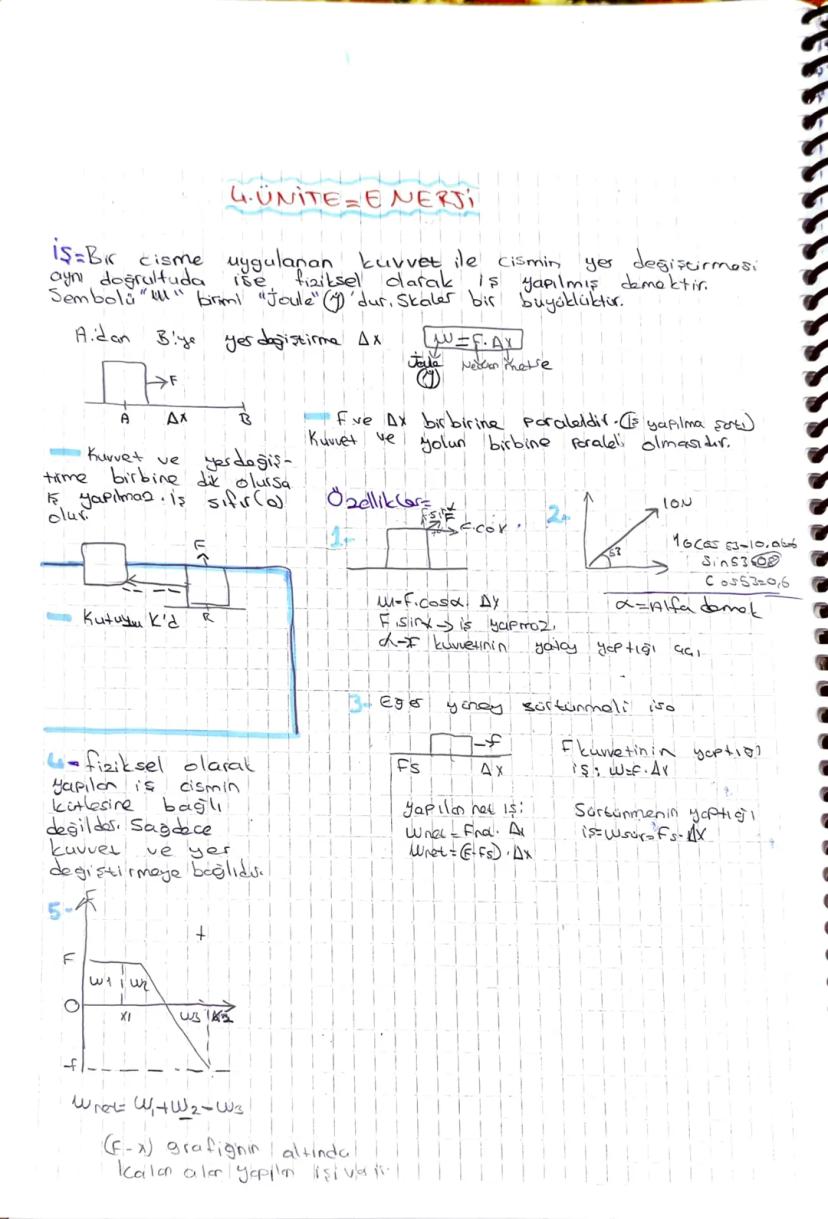 4.ÜNİTE=ENERJİ
İŞ=Bir cisme uygulanan kuvvet ile cismin yer değiştirmesi
aynı doğrultuda ise fiziksel olarak iş yapılmış demektir.
Sembolü "W" birimi "Joule" (J)'dur. Skaler bir büyüklüktür.
A'dan B'ye yer değiştirme Δx
W=F.Δx
Joule Newton metre
(J)
F
A Δx B
F ve Δx birbirine paraleldir. (İş yapılma şartı)
Kuvvet ve yolun birbine paralel olmasıdır.
Kuvvet ve yerdeğiş-
tirme birbine dik olursa
iş yapılmaz. iş sıfır(0)
olur.
F
R
Kutuyu K'd
Özellikler=
1-
F.cosα
W=F.cosα. Δx
F.sinα→iş yapmaz.
α→F kuvvetinin yatay yaptığı açı.
2-
10N
53
10cos 53=10.0,6
Sin53=0,8
Cos53=0,6
α=Alfa demek
3- Eğer yüzey sürtünmeli ise
f
FS Δx
F kuvvetinin yaptığı
iş: W=F.Δx
yapılan net iş:
Wnet=Fnet. Δx
Wnet=(F-Fs).Δx
Sürtünmenin yaptığı
iş=Wsür=Fs.Δx
4-fiziksel olarak
yapılan iş cismin
kütlesine bağlı
değildir. Sadece
kuvvet ve yer
değiştirmeye bağlıdır.
5-
F
+
F
W1 W2
O
X1 W3 X2
-f
Wnet= W1+W2-W3
(F-x) grafiğinin altında
kalan alan yapılan işi verir.